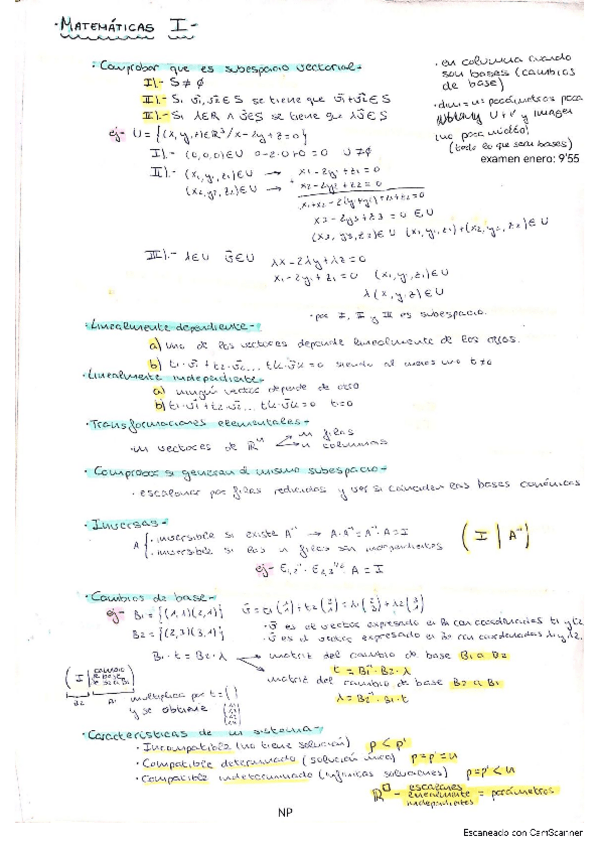 · MATEMÁTICAS I-
· Comprobar que es subespacio vectorial-
I).- S ≠ ∅
II).- Si v̄1, v̄2 ∈ S se tiene que v̄1+v̄2 ∈ S
III).- Si λ∈R ∧ v̄∈S se tiene que λv̄∈S
· en columna cuando son bases (cambios de base)
· dim = nº parámetros para U+V y imagen
(no para núcleo)
(todo lo que sean bases)
examen enero: 9'55
ej- U = {(x,y,z)∈R³/x-2y+z=0}
I).- (0,0,0)∈U 0-2·0+0=0 U≠∅
II).- (x1,y1,z1)∈U → x1-2y1+z1=0
(x2,y2,z2)∈U → x2-2y2+z2=0
x1+x2-2(y1+y2)+z1+z2=0
x3-2y3+z3=0 ∈U
(x3,y3,z3)∈U (x1,y1,z1)+(x2,y2,z2)∈U
III).- λ∈U v̄∈U λx-2λy+λz=0
x1-2y1+z1=0 (x1,y1,z1)∈U
λ(x,y,z)∈U
· por I, II y III es subespacio.
· Linealmente dependiente-
a) uno de los vectores depende linealmente de los otros.
b) t1·v̄1+t2·v̄2... tk·v̄k=0 siendo al menos uno t≠0
· Linealmente independiente-
a) ningún vector depende de otro
b) t1·v̄1+t2·v̄2... tk·v̄k=0 t=0
· Transformaciones elementales-
· m vectores de Rⁿ m filas
n columnas
· Comprobar si generan el mismo subespacio-
· escalonar por filas reducidas y ver si coinciden las bases canónicas
· Inversas-
A { · inversible si existe A⁻¹ → A·A⁻¹=A⁻¹·A=I
· inversible si las n filas son independientes
( I | A⁻¹ )
· Cambios de base-
ej- B1={(1,1)(2,1)}
B2={(2,3)(3,1)}
· v̄ es el vector expresado en B1 con coordenadas t1 y t2
· v̄ es el vector expresado en B2 con coordenadas λ1 y λ2.
B1·t = B2·λ → matriz del cambio de base B1 a B2
t = B1⁻¹·B2·λ
matriz del cambio de base B2 a B1
λ = B2⁻¹·B1·t
multiplica por t = ( )
y se obtiene
· Características de un sistema-
· Incompatible (no tiene solución) p < p'
· Compatible determinado (solución única) p=p'=n
· Compatible indeterminado (infinitas soluciones) p=p' < n
escalones linealmente independientes = parámetros
NP
Escaneado con CamScanner